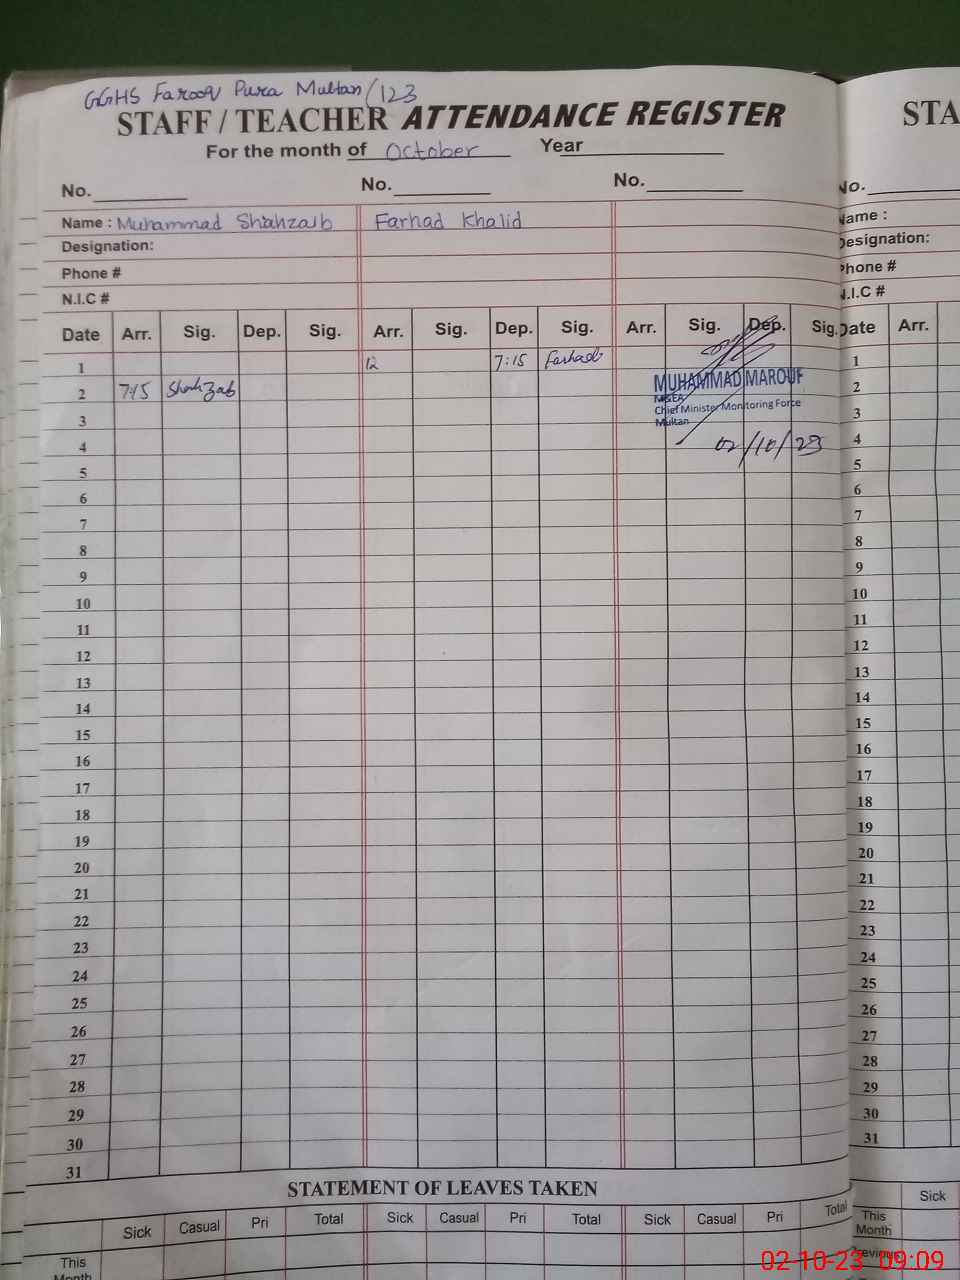 GGHS Farooq Pura Multan/123
STAFF / TEACHER ATTENDANCE REGISTER
STA
For the month of October Year
No. No. No. No.
Name : Muhammad Shahzaib Farhad Khalid Name :
Designation: Designation:
Phone # Phone #
N.I.C # N.I.C #
Date Arr. Sig. Dep. Sig. Arr. Sig. Dep. Sig. Arr. Sig. Dep. Sig. Date Arr.
1 12 7:15 Farhad 1
2 7:15 Shahzab MUHAMMAD MAROUF 2
MEA
3 Chief Minister Monitoring Force 3
Multan
4 02/10/23 4
5 5
6 6
7 7
8 8
9 9
10 10
11 11
12 12
13 13
14 14
15 15
16 16
17 17
18 18
19 19
20 20
21 21
22 22
23 23
24 24
25 25
26 26
27 27
28 28
29 29
30 30
31 31
STATEMENT OF LEAVES TAKEN
Sick Casual Pri Total Sick Casual Pri Total Sick Casual Pri Total Sick
This Month This Month
Previous
02-10-23 09:09